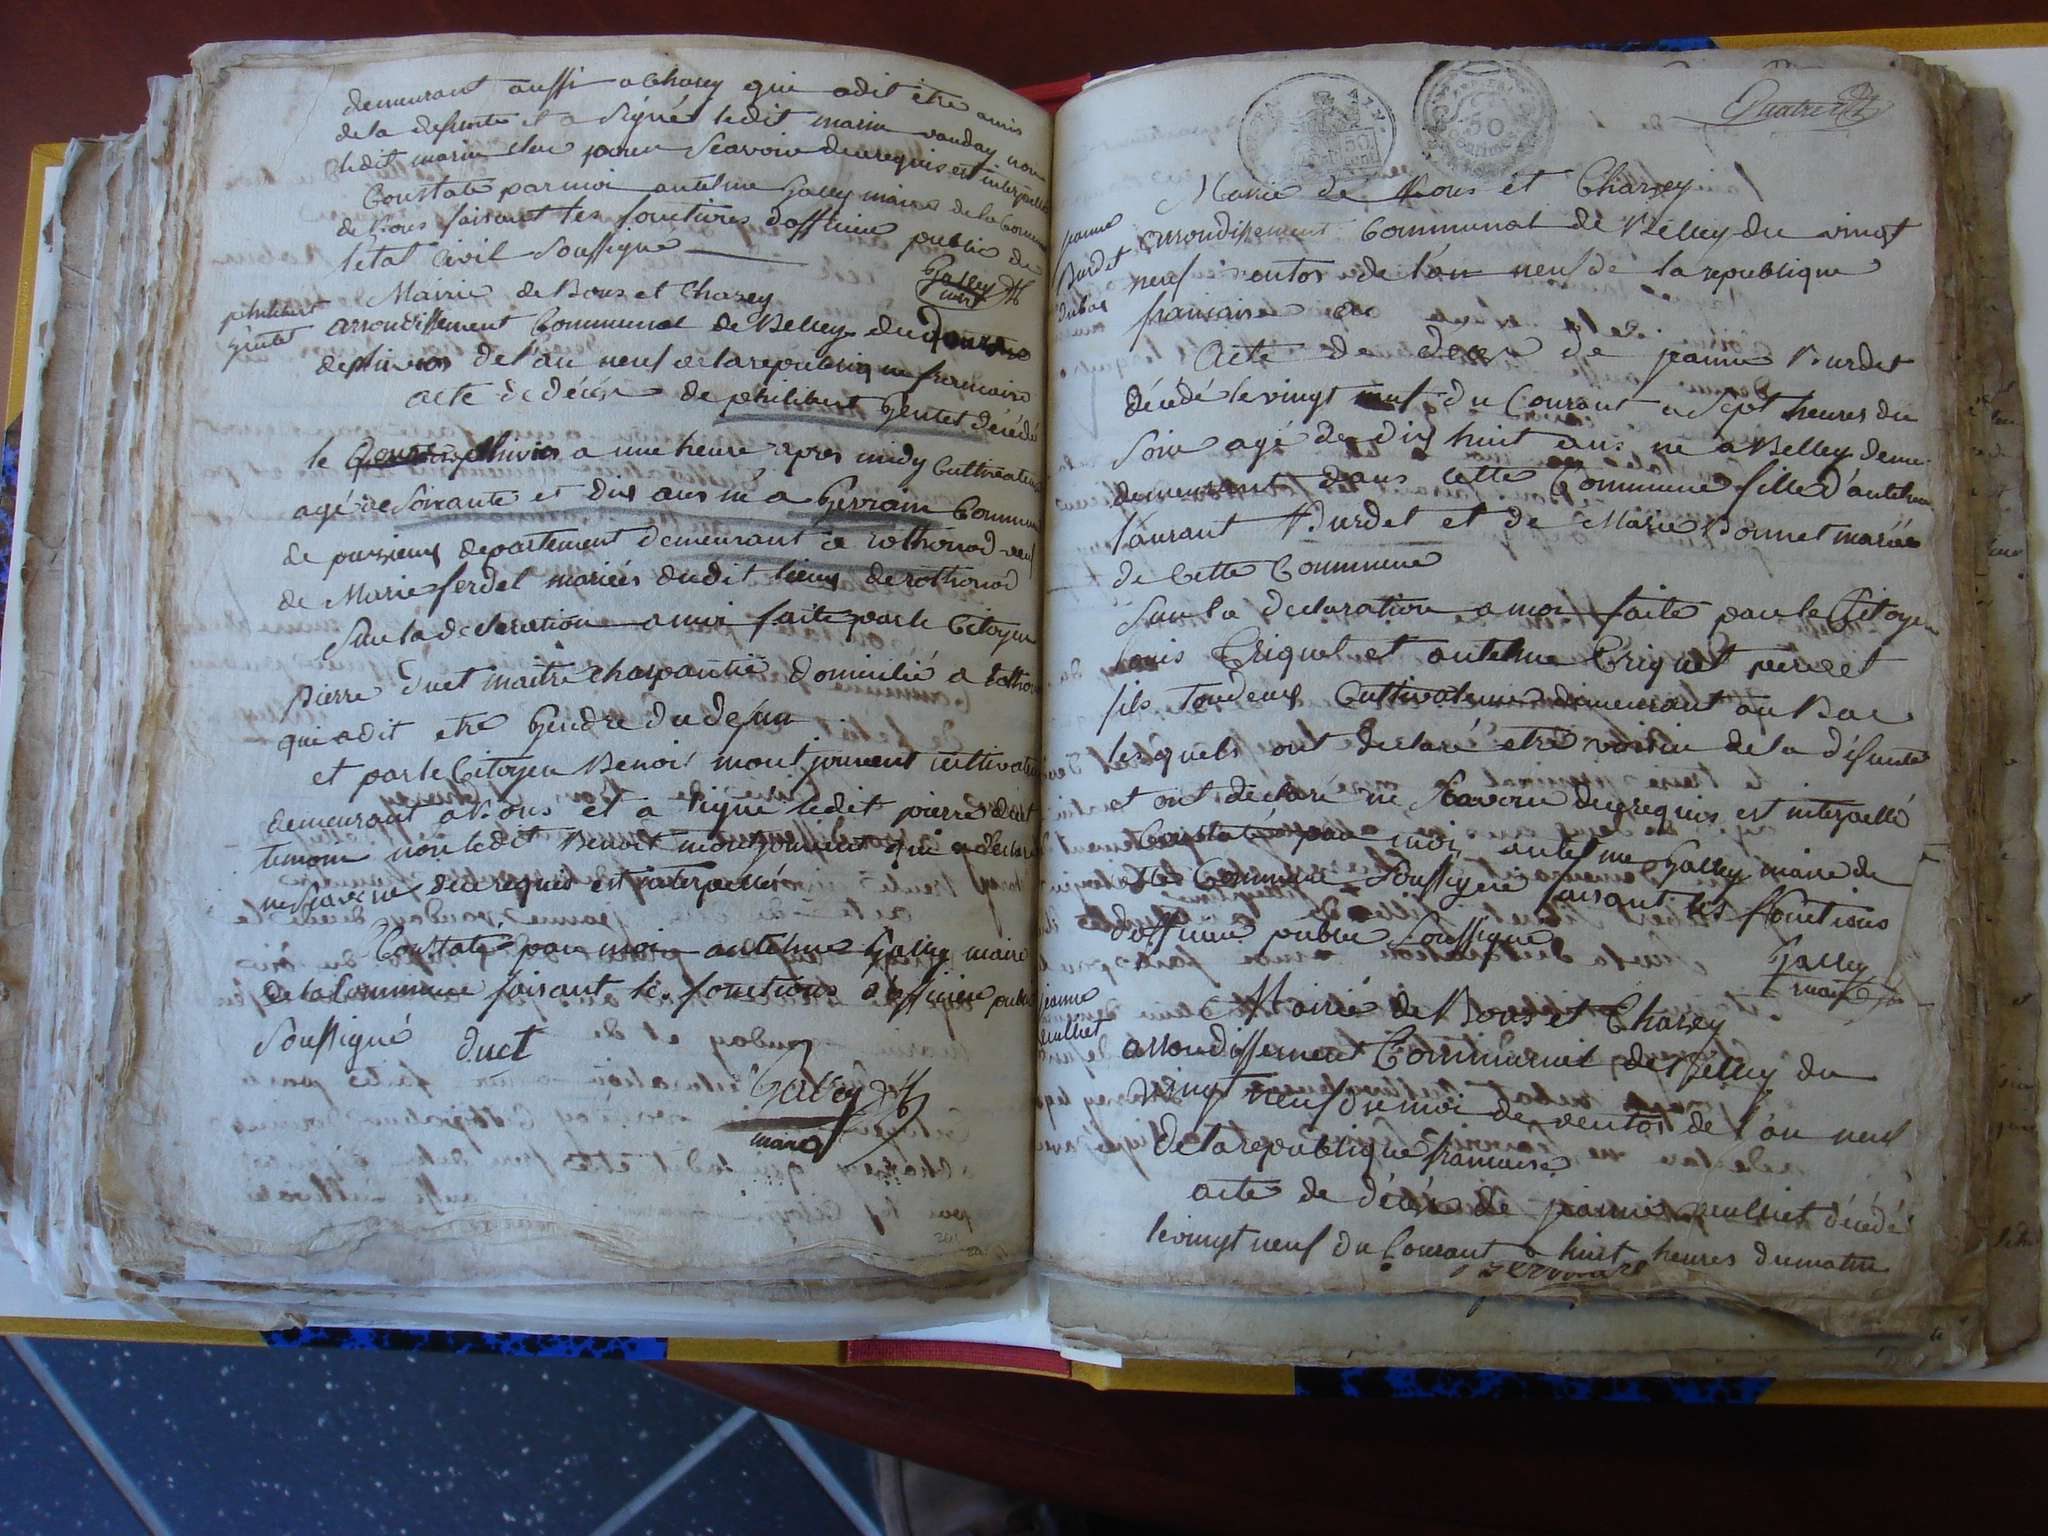 demeurant aussi a Chasey qui a dit être amis
de la defunte et a signé ledit marin vauday non
ledit marin
Constaté par moi antelme Galley maire de la Commune
de Bons faisant les fonctions d'officier public de
l'etat Civil Soussigné
Galley
maire
philibert
gentet
Mairie de Bons et Chasey
arrondissement Communal de Belley du Douze
de pluvios de l'an neuf de la republique francaise
acte de décés de philibert Gentet décédé
le pluvios a une heure apres midy Cultivateur
agé de Soixante et dix ans né a Gevrain Commune
de departement demeurant a rothonod veuf
de Marie ferdel mariés dudit lieux de rothonod
Sur la declaration a moi faite par le Citoyen
Pierre duet maitre charpantié domicilié a Rothono
qui a dit etre Gendre du defun
et par le Citoyen Benoit montjouvent cultivateur
demeurant a Bons et a signé ledit pierre duet
temoin non ledit Benoit montjouvent qui a declaré
ne scavoir de ce requis est interpellés
Constaté par moi antelme Galley maire
de la Commune faisant les fonctions d'officier public
Soussigné duet
Galley
maire
Quatre
50
Mairie de Bons et Chasey
jeanne
Burdet
dubac
arrondissement Communal de Belley du vingt
neuf ventos de l'an neuf de la republique
francaise
Acte de deces de jeanne Burdet
décédé le vingt neuf du Courant a Sept heures du
Soir agé de dix huit ans né a Belley deme
demeurant dans cette Commune fille d'antelme
laurant Burdet et de Marie Bonnet mariés
de Cette Commune
Sur la declaration a moi faite par le Citoyen
louis Criquet et antelme Criquet pere et
fils tou deux Cultivateur demeurant au Bac
lesquels ont declaré etre voisin de la défunte
et ont déclaré ne Scavoir de ce requis est interpellé
Constaté par moi antelme Galley maire de
Commune Soussigné faisant les fonctions
d'officier public Soussigné
Galley
maire
jeanne
Mairie de Bons et Chasey
arrondissement Communal de Belley du
vingt neuf du moi de ventos de l'an neuf
de la republique francaise
acte de décés de jeanne décédé
le vingt neuf du Courant a huit heures du matin